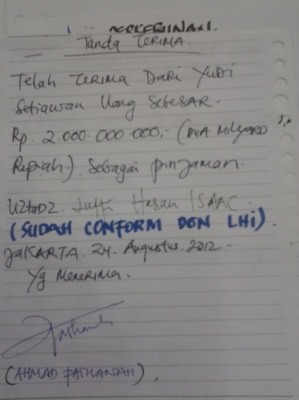 Tanda Terima.
Telah Terima Dari Yudi
Setiawan Uang Sebesar.
Rp. 2.000.000.000,- (Dua Milyard
Rupiah.) Sebagai pinjaman.
Uztadz. Lutfi Hasan ISAAC.
(SUDAH CONFORM DGN LHI).
JAKARTA 24. Agustus. 2012 -
Yg Menerima.
(AHMAD FATHANAH).